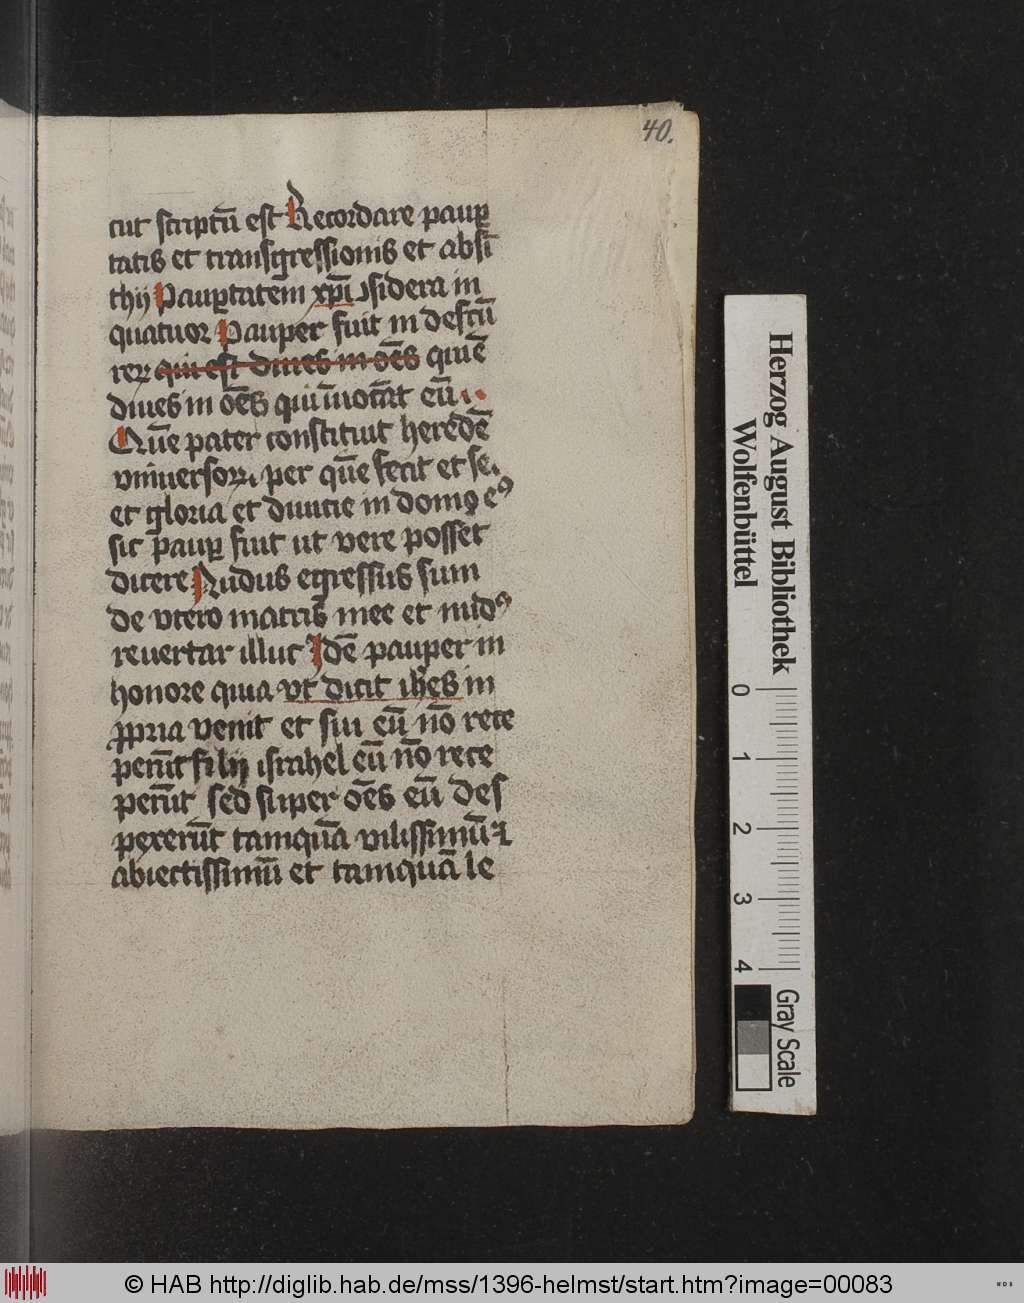 40.
cut scriptū est Recordare paup̲
tatis et transgressionis et absī
thij Paup̲tatem xp̄i ɔsidera in
quatuor Pauper fuit in descū
reꝝ qui est diues in oēs quiē
diues in oēs qui īuocāt eū
Quē pater constituit heredē
vniuersoꝝ per quē fecit et sc̄a
et gloria et diuicie in domo eꝰ
sic paup̲ fuit ut vere posset
dicere Nudus egressus sum
de vtero matris mee et nudꝰ
reuertar illuc Idē pauper in
honore quia vt dicit ihēs in
ꝓpria venit et sui eū nō rece
perūt filij israhel eū nō rece
perūt sed super oēs eū des
pexerūt tamquā vilissimū et
abiectissimū et tamquā le
Herzog August Bibliothek
Wolfenbüttel
0 1 2 3 4
Gray Scale
© HAB http://diglib.hab.de/mss/1396-helmst/start.htm?image=00083